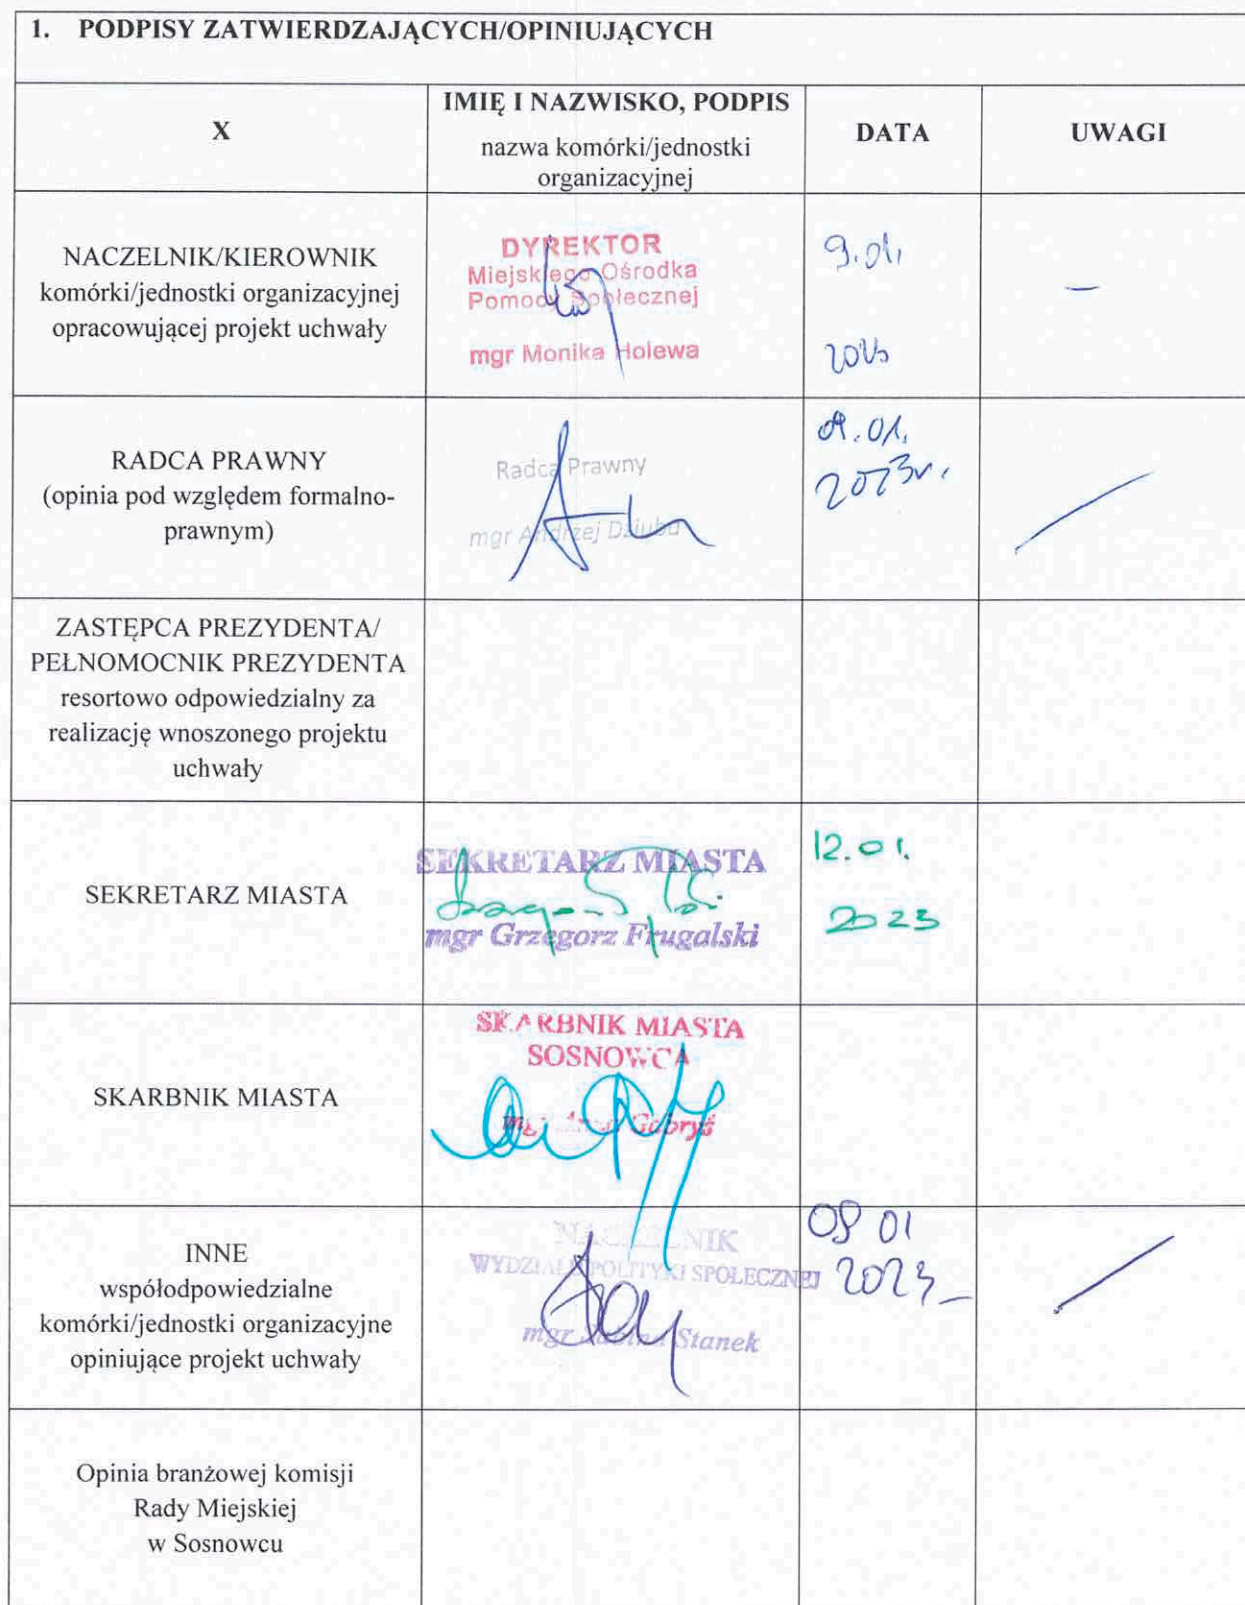 1. PODPISY ZATWIERDZAJĄCYCH/OPINIUJĄCYCH
X
IMIĘ I NAZWISKO, PODPIS
nazwa komórki/jednostki
organizacyjnej
DATA
UWAGI
NACZELNIK/KIEROWNIK
komórki/jednostki organizacyjnej
opracowującej projekt uchwały
DYREKTOR
Miejskiego Ośrodka
Pomocy Społecznej
mgr Monika Holewa
9.01.
2023
RADCA PRAWNY
(opinia pod względem formalno-
prawnym)
Radca Prawny
mgr Andrzej Dziuba
09.01.
2023r.
ZASTĘPCA PREZYDENTA/
PEŁNOMOCNIK PREZYDENTA
resortowo odpowiedzialny za
realizację wnoszonego projektu
uchwały
SEKRETARZ MIASTA
SEKRETARZ MIASTA
mgr Grzegorz Frugalski
12.01.
2023
SKARBNIK MIASTA
SKARBNIK MIASTA
SOSNOWCA
mgr Gabryś
INNE
współodpowiedzialne
komórki/jednostki organizacyjne
opiniujące projekt uchwały
NACZELNIK
WYDZIAŁU POLITYKI SPOŁECZNEJ
mgr Sabina Stanek
09 01
2023
Opinia branżowej komisji
Rady Miejskiej
w Sosnowcu